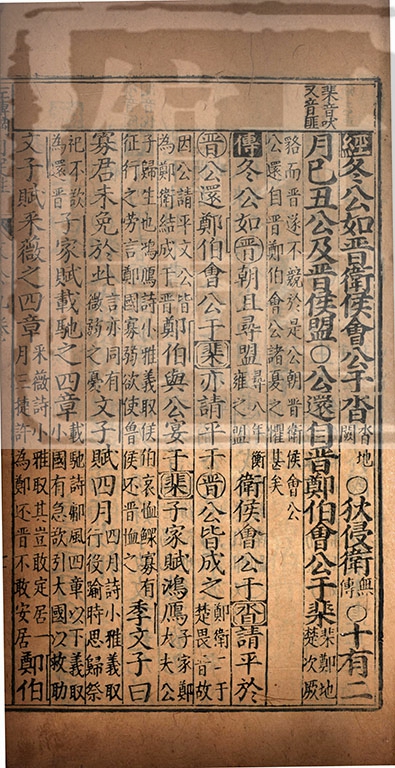 棐音吠
又音匪
經冬公如晋衛侯會公于沓沓地闕○狄侵衛無傳○十有二
月己丑公及晋侯盟○公還自晋鄭伯會公于棐棐鄭地楚次厥
貉而晋遂不競於是公朝晋衛侯會公公還自晋鄭伯會公諸夏之懼甚矣
傳冬公如晋朝且尋盟尋八年衡雍之盟衛侯會公于沓請平於
晋公還鄭伯會公于棐亦請平于晋公皆成之鄭衛二于楚畏晋故
因公請平文公皆為鄭衛結成于晋鄭伯與公宴于棐子家賦鴻鴈子家鄭大夫公
子歸生也鴻鴈詩小雅義取侯伯哀恤鰥寡有征行之勞言鄭國寡弱欲使魯侯还晋恤季文子曰
寡君未免於此言亦同有微弱之憂文子賦四月四月詩小雅義取行役踰時思歸祭
祀不欲為還晋子家賦載馳之四章載馳詩鄘風四章以下義取小國有急欲引大國以救助
文子賦采薇之四章采薇詩小雅取其豈敢定居一月三捷許為鄭还晋不敢安居鄭伯